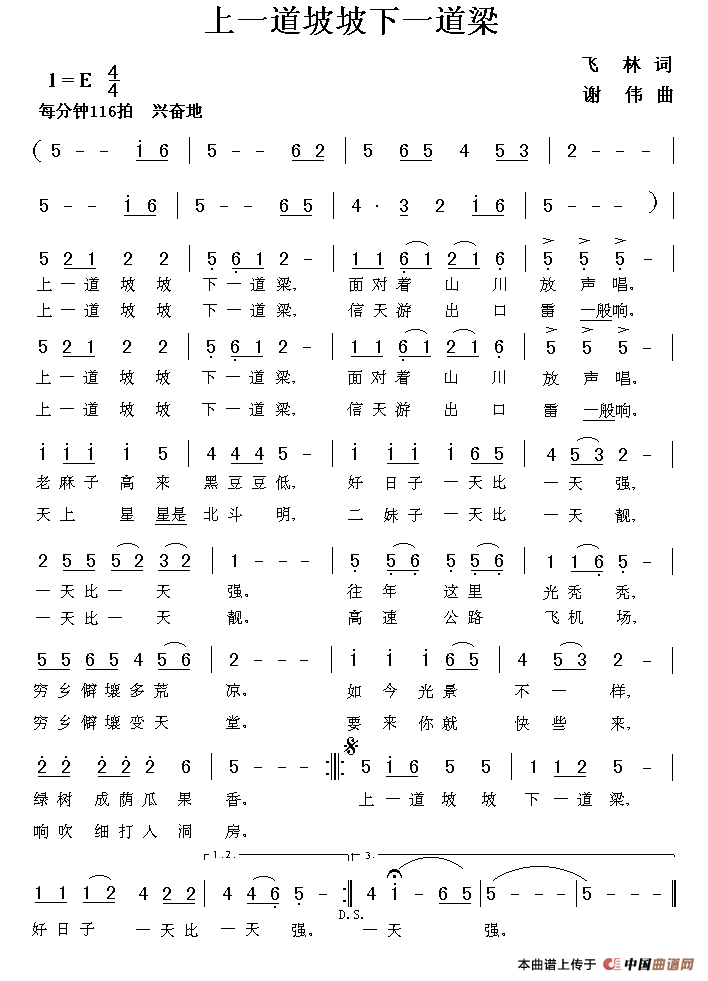 上一道坡坡下一道梁
1=E 4/4
飞 林 词
每分钟116拍 兴奋地
谢 伟 曲
( 5 - - i 6 | 5 - - 6 2 | 5 6 5 4 5 3 | 2 - - - |
5 - - i 6 | 5 - - 6 5 | 4 · 3 2 i 6 | 5 - - ) |
5 2 1 2 2 | 5 6 1 2 - | 1 1 6 1 2 1 6 | 5 5 5 - |
上 一 道 坡 坡 下 一 道 梁, 面 对 着 山 川 放 声 唱。
上 一 道 坡 坡 下 一 道 梁, 信 天 游 出 口 雷 一般 响。
5 2 1 2 2 | 5 6 1 2 - | 1 1 6 1 2 1 6 | 5 5 5 - |
上 一 道 坡 坡 下 一 道 梁, 面 对 着 山 川 放 声 唱。
上 一 道 坡 坡 下 一 道 梁, 信 天 游 出 口 雷 一般 响。
i i i i 5 | 4 4 4 5 - | i i i i 6 5 | 4 5 3 2 - |
老 麻 子 高 来 黑 豆 豆 低, 好 日 子 一 天 比 一 天 强,
天 上 星 星是 北 斗 明, 二 妹 子 一 天 比 一 天 靓,
2 5 5 5 2 3 2 | 1 - - - | 5 5 6 5 5 6 | 1 1 6 5 - |
一 天 比 一 天 强。 往 年 这 里 光 秃 秃,
一 天 比 一 天 靓。 高 速 公 路 飞 机 场,
5 5 6 5 4 5 6 | 2 - - - | i i i 6 5 | 4 5 3 2 - |
穷 乡 僻 壤 多 荒 凉。 如 今 光 景 不 一 样,
穷 乡 僻 壤 变 天 堂。 要 来 你 就 快 些 来,
2 2 2 2 2 6 | 5 - - - :||: 5 i 6 5 5 | 1 1 2 5 - |
绿 树 成 荫 瓜 果 香。 上 一 道 坡 坡 下 一 道 梁,
响 吹 细 打 人 洞 房。
1.2. 3.
1 1 1 2 4 2 2 | 4 4 6 5 - :|| 4 i - 6 5 | 5 - - - 5 - - ||
D.S.
好 日 子 一 天 比 一 天 强。 一 天 强。
本曲谱上传于 中国曲谱网